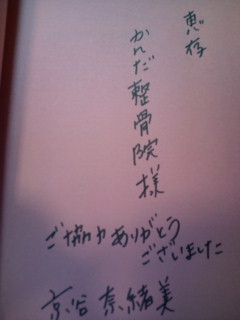 恵存
かんだ整骨院様
ご協力ありがとう
ございました
京谷奈緒美